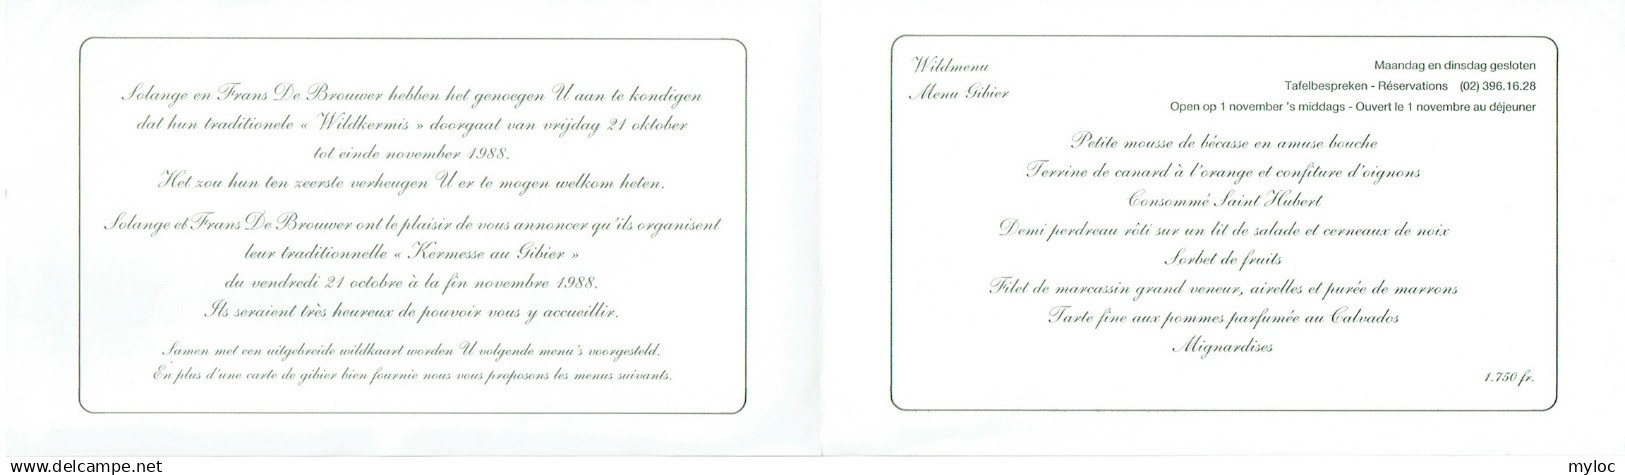 Solange en Frans De Brouwer hebben het genoegen U aan te kondigen
dat hun traditionele « Wildkermis » doorgaat van vrijdag 21 oktober
tot einde november 1988.
Het zou hun ten zeerste verheugen U er te mogen welkom heten.
Solange et Frans De Brouwer ont le plaisir de vous annoncer qu'ils organisent
leur traditionnelle « Kermesse au Gibier »
du vendredi 21 octobre à la fin novembre 1988.
Ils seraient très heureux de pouvoir vous y accueillir.
Samen met een uitgebreide wildkaart worden U volgende menu's voorgesteld.
En plus d'une carte de gibier bien fournie nous vous proposons les menus suivants.
Wildmenu
Menu Gibier
Maandag en dinsdag gesloten
Tafelbespreken - Réservations (02) 396.16.28
Open op 1 november 's middags - Ouvert le 1 novembre au déjeuner
Petite mousse de bécasse en amuse bouche
Terrine de canard à l'orange et confiture d'oignons
Consommé Saint Hubert
Demi perdreau rôti sur un lit de salade et cerneaux de noix
Sorbet de fruits
Filet de marcassin grand veneur, airelles et purée de marrons
Tarte fine aux pommes parfumée au Calvados
Mignardises
1.750 fr.
delcampe.net
myloc